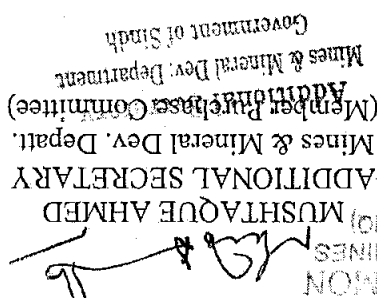 MUSHTAQUE AHMED
ADDITIONAL SECRETARY
Mines & Mineral Dev. Depatt.
(Member Purchase Committee)
Additional
Mines & Mineral Dev: Department
Government of Sindh